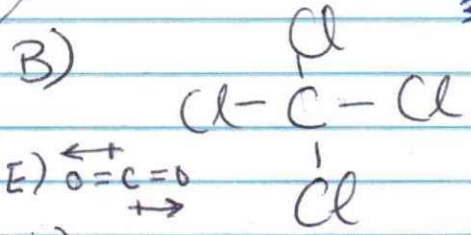 B)
Cl
Cl - C - Cl
Cl
E) O = C = O